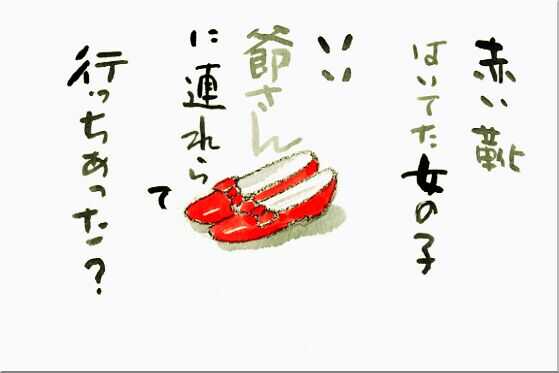 赤い靴
はいてた女の子
いい
爺さん
に連れら
て
行っちあった?